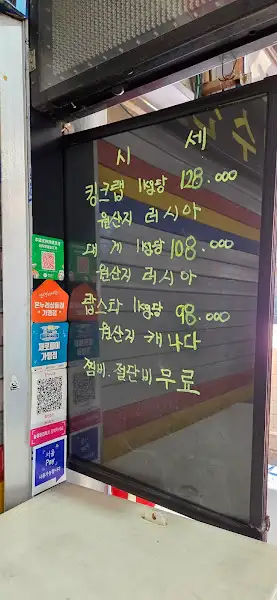 시 세
킹크랩 1kg당 128.000
원산지 러시아
대게 1kg당 108.000
원산지 러시아
랍스타 1kg당 98.000
원산지 캐나다
찜비.절단비 무료
온누리상품권
가맹점
제로페이
가맹점
서울
Pay